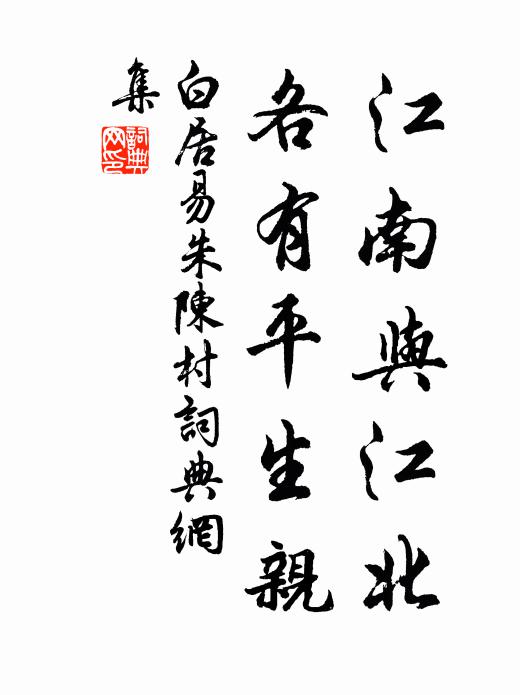 江南與江北
各有平生親
白居易朱陳村詞典網
集
詞典
网印